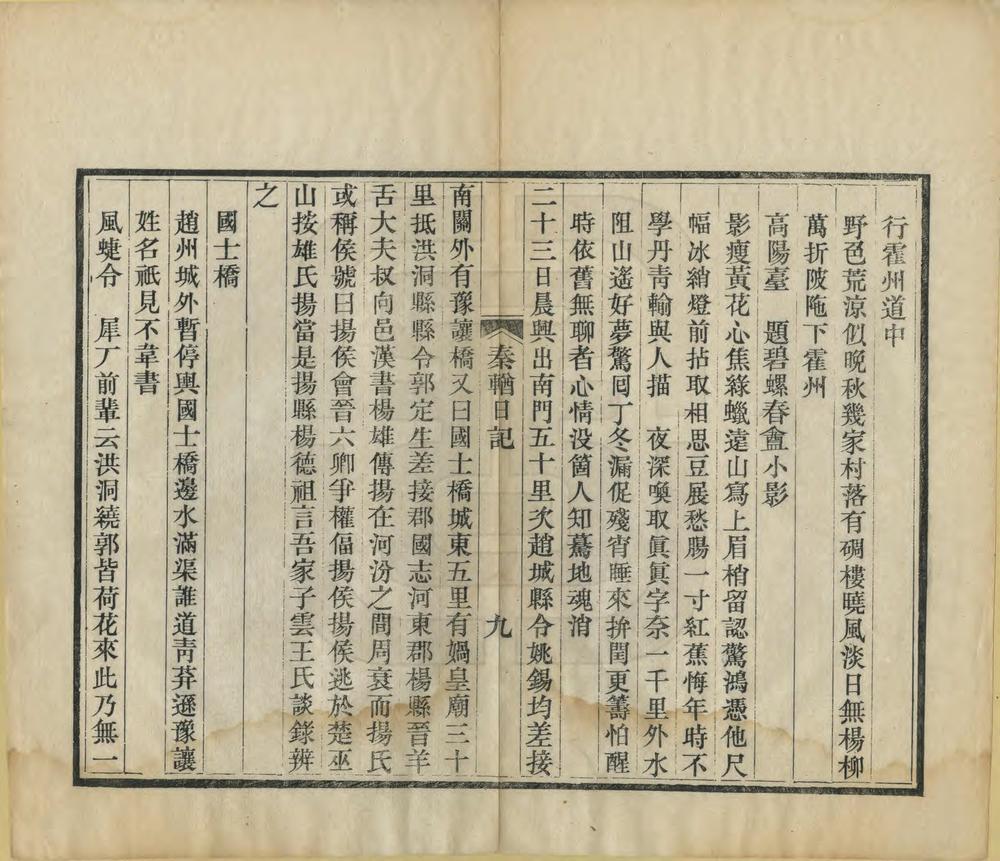 行霍州道中
野色荒涼似晚秋幾家村落有碉樓曉風淡日無楊柳
萬折陂陁下霍州
高陽臺　題碧螺春盦小影
影瘦黃花心焦綠蠟遠山寫上眉梢留認驚鴻憑他尺
幅冰綃燈前拈取相思豆展愁腸一寸紅蕉悔年時不
學丹靑輸與人描　夜深喚取眞眞字奈一千里外水
阻山遙好夢驚囘丁冬漏促殘宵睡來拚閏更籌怕醒
時依舊無聊者心情没箇人知驀地魂消
二十三日晨興出南門五十里次趙城縣令姚錫均差接
秦輶日記
九
南關外有豫讓橋又曰國士橋城東五里有媧皇廟三十
里抵洪洞縣縣令郭定生差接郡國志河東郡楊縣晉羊
舌大夫叔向邑漢書楊雄傳揚在河汾之間周衰而揚氏
或稱侯號曰揚侯會晉六卿爭權偪揚侯揚侯逃於楚巫
山按雄氏揚當是揚縣楊德祖言吾家子雲王氏談錄辨
之
國士橋
趙州城外暫停輿國士橋邊水滿渠誰道靑荓遜豫讓
姓名祇見不韋書
風蜨令　犀丆前輩云洪洞繞郭皆荷花來此乃無一